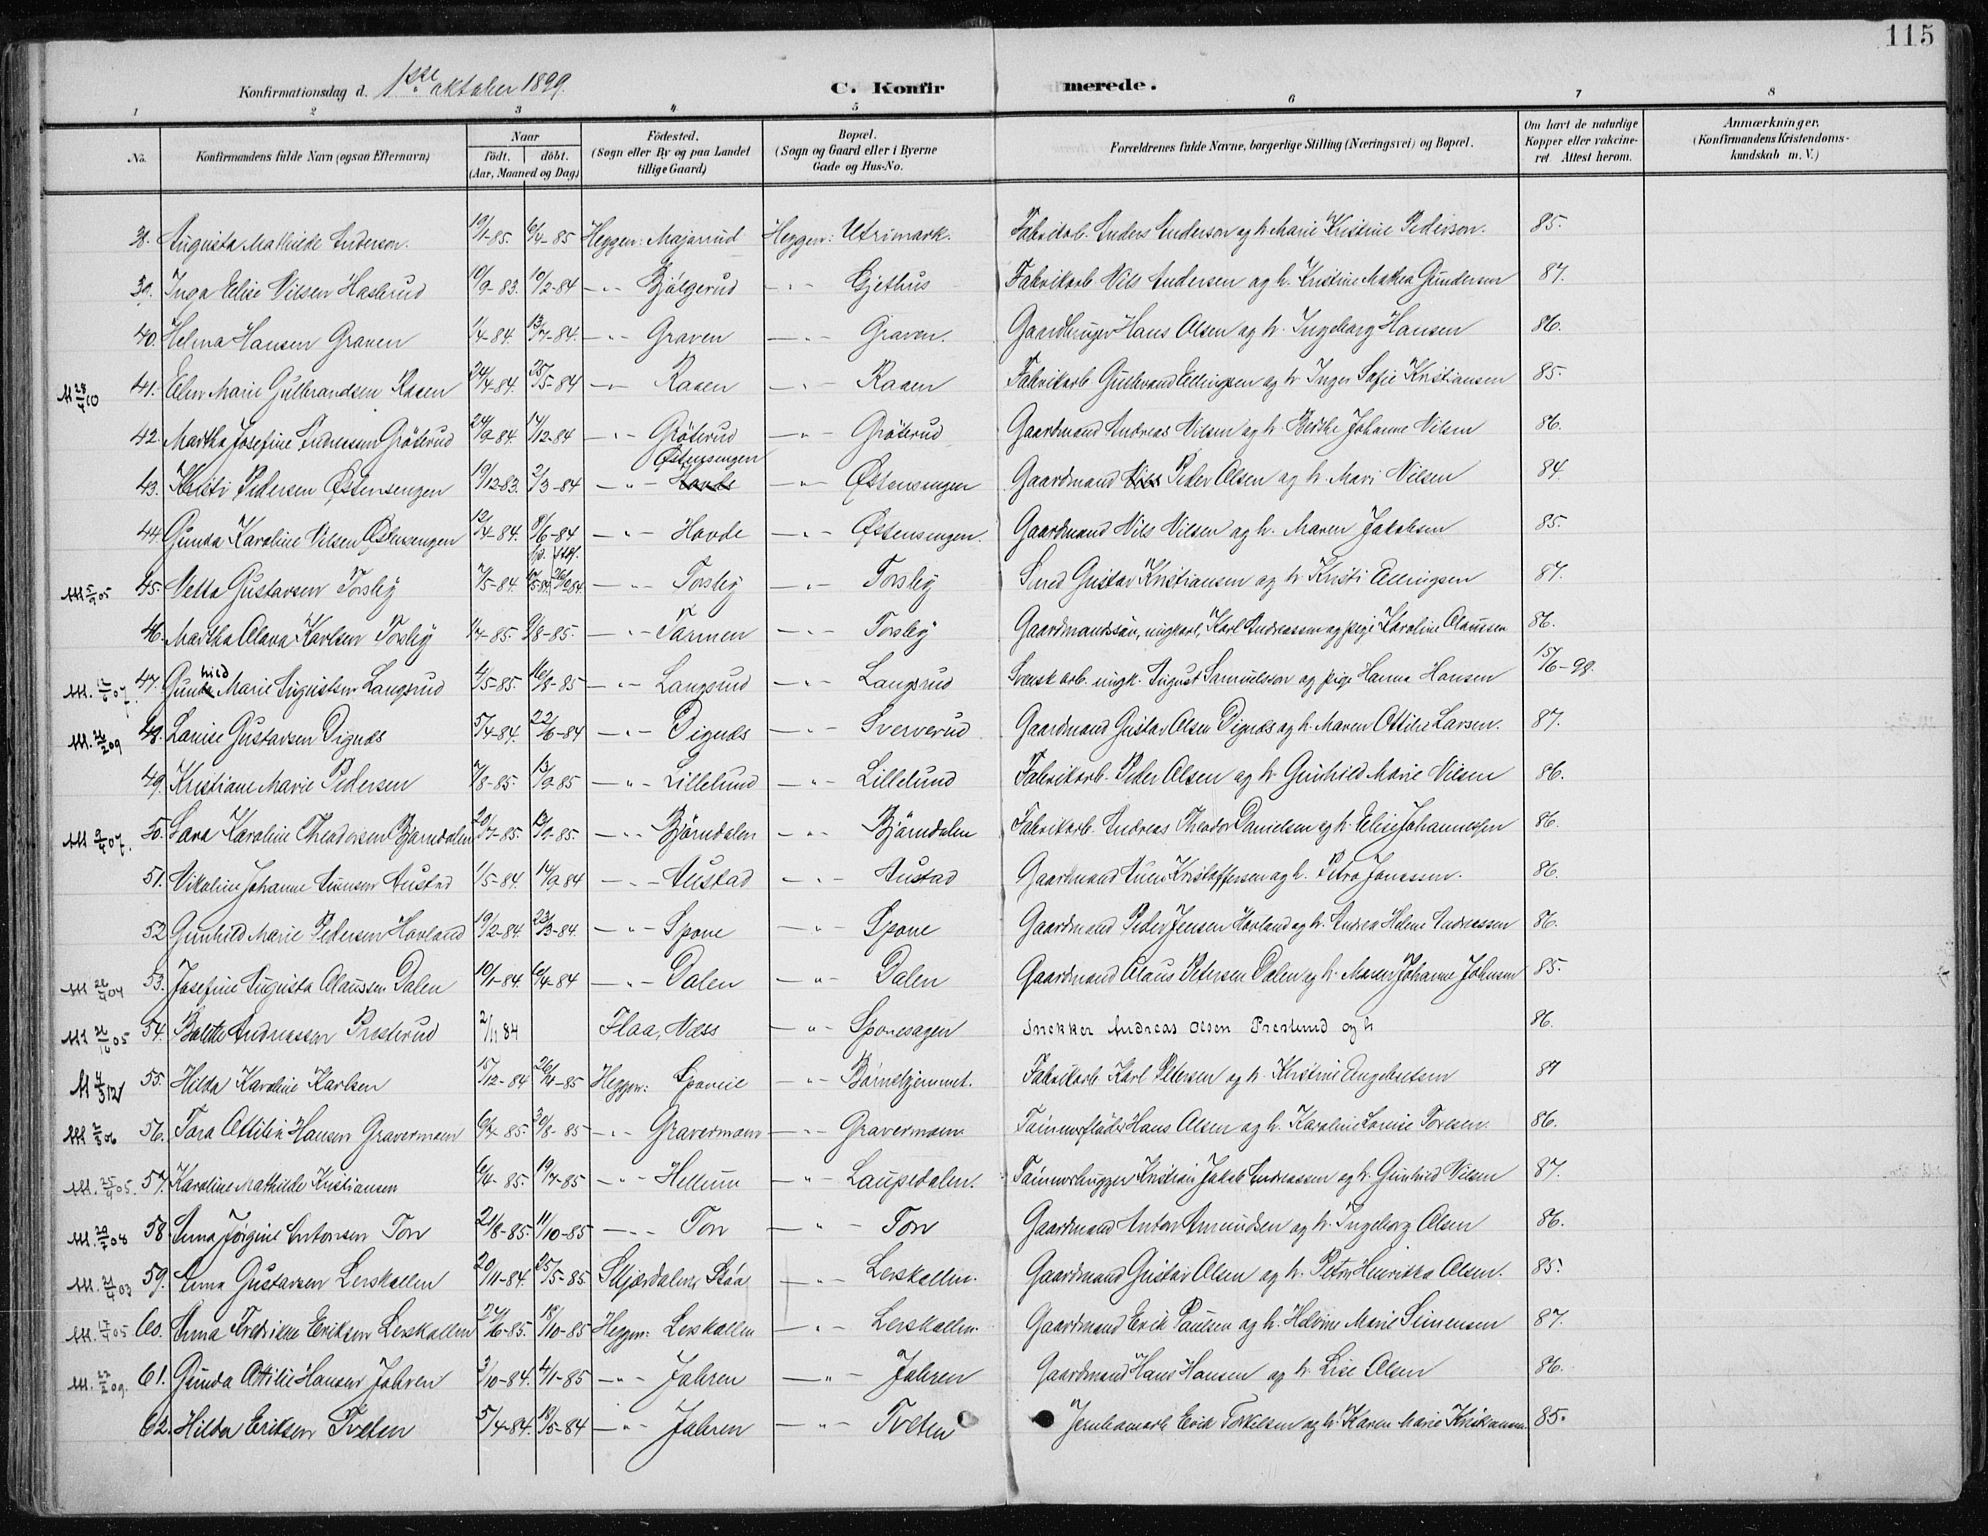 115
Konfirmationsdag d. 1ste oktober 1899.
C. Konfirmerede.
1 2 3 4 5 6 7 8
No. Konfirmandens fulde Navn (ogsaa Efternavn) Naar født. døbt. (Aar, Maaned og Dag) Fødested. (Sogn eller By og paa Landet tillige Gaard) Bopæl. (Sogn og Gaard eller i Byerne Gade og Hus-No. Forældrenes fulde Navne, borgerlige Stilling (Næringsvei) og Bopæl. Om havt de naturlige Kopper eller vakcineret. Attest herom. Anmærkninger. (Konfirmandens Kristendomskundskab m. V.)
38. Augusta Mathilde Anderson. 19/1-85. 6/4-85 Heggen: Majarud Heggen: Utrimark. Fabrikarb. Anders Anderson og h. Marie Kristine Pederson. 85.
39. Inga Elise Nilsen Haslerud 10/9-83. 10/2-84 -"- Bjölgerud -"- Gjethus Fabrikarb. Nils Andersen og h. Kristine Mathea Gundersen 87.
40. Helma Hansen Graven 1/4-84. 13/7-84. -"- Graven -"- Graven. Gaardbruger Hans Olsen og h. Ingeborg Hansen 86.
M 28/4 10 41. Elen Marie Gulbrandsen Raaen 24/4-84. 25/5-84 -"- Raaen -"- Raaen Fabrikarb. Gulbrand Ellingsen og h. Inger Sofie Kristiansen 85.
42. Martha Josefine Andreasen Gröterud 24/9-84. 14/12-84 -"- Gröterud -"- Gröterud Gaardmand Andreas Nilsen og h. Berthe Johanne Nilsen 86.
43. Kristi Pedersen Østensengen 19/12-83. 2/3-84 -"- Østensengen -"- Østensengen Gaardmand Peder Olsen og h. Mari Nilsen 84.
44. Gunda Karoline Nilsen Østensengen 12/4-84. 8/6-84 -"- Hovde -"- Østensengen. Gaardmand Nils Nilsen og h. Maren Jakobsen 85.
M 5/9 05 45. Netta Gustavsen Torsby 7/5-84. -"- Torsby -"- Torsby Smed Gustav Kristiansen og h. Kristi Ellingsen 87.
46. Martha Olava Karlsen Torsby 1/4-85. 9/8-85. -"- Tarmen -"- Torsby Gaardmandssön, ungkarl, Karl Andreassen og pige Karoline Olaussen 86.
47. Gunhild Marie Augustsen Langsrud 4/5-85. 16/8-85 -"- Langsrud -"- Langsrud Svensk arb. ungk. August Samuelsson og pige Hanna Hansen 15/6-99.
48. Louise Gustavsen Dignæs 5/4-84. 22/6-84 -"- Dignæs -"- Sververud Gaardmand Gustav Olsen Dignæs og h. Maren Ottilie Larsen. 87.
49. Kristiane Marie Pedersen 7/8-85. 13/9-85 -"- Lillelund -"- Lillelund Fabrikarb. Peder Olsen og h. Gunhild Marie Nilsen 86.
50. Lara Karoline Theodorsen Bjørndalen 20/7-85. 13/9-85. -"- Bjørndalen -"- Bjørndalen Fabrikarb. Andreas Theodor Danielsen og h. Elise Johannessen 86.
51. Nikoline Johanne Aunesen Austad 1/5-84. 14/9-84 -"- Austad -"- Austad Gaardmand Aune Kristoffersen og h. Petra Jonassen. 86.
52. Gunhild Marie Pedersen Hovland 19/2-84. 23/3-84. -"- Spone -"- Spone Gaardmand Peder Jensen Hovland og h. Andrea Helene Andreassen 86.
M 26/4 04 53. Josefine Augusta Olaussen Dalen 10/1-84. 6/4-84 -"- Dalen -"- Dalen Gaardmand Olaus Petersen Dalen og h. Maren Johanne Johnsen 85.
M 21/10 05 54. Bolette Andreassen Presterud 2/11 84 Flaa, Næss -"- Sponesagen Snekker Andreas Olsen Prestrud og h 86.
M 4/3 12 55. Hilda Karoline Karlsen 15/12-84 26/4-85 Heggen: Sponeie -"- Børnehjemmet. Fabrikarb. Karl Pettersen og h. Kristine Engebretsen 87
M 2/5 06 56. Tora Ottilia Hansen Gravermoen 6/4-85. 30/8-85 -"- Gravermoen -"- Gravermoen Tømmerfløder Hans Olsen og h. Karoline Lovise Toresen. 86.
57. Karoline Mathilde Kristiansen 6/4-85. 19/7-85 -"- Hellum -"- Laupedalen. Tømmerhugger Kristian Jakob Andreassen og h. Gunhild Nilsen 87.
58. Anna Jørgine Antonsen Ton 21/8-85. 11/10-85 -"- Ton -"- Ton Gaardmand Anton Amundsen og h. Ingeborg Olsen 86.
59. Anna Gustavsen Lerskallen 20/11-84. 25/5-85 Skjærdalen: Støa -"- Lerskallen. Gaardmand Gustav Olsen og h. Petra Henrikka Olsen. 85.
60. Anna Fredrikke Eriksen Lerskallen 24/6-85. 18/10-85 Heggen: Lerskallen -"- Lerskallen. Gaardmand Erik Paulsen og h. Helene Marie Simensen 87.
61. Gunda Otilie Hansen Jahren 3/10-84. 4/1-85 -"- Jahren -"- Jahren Gaardmand Hans Hansen og h. Lise Olsen 86.
62. Hilda Eriksen Tveten 5/4-84. 18/5-84 -"- Jahren -"- Tveten Jernbanearb. Erik Torkelsen og h. Karen Marie 85.